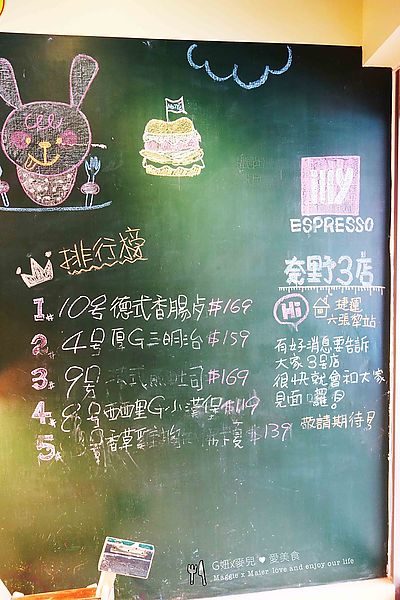 illy
ESPRESSO
排行榜
奈野3店
Hi
捷運
六張犁站
1# 10号德式香腸 $169
2# 4号 厚G三明治 $159
3. 9号 式煎吐司 $169
4. 8号 西西里G小漢堡 $119
5. 号香草 $139
有好消息要告訴
大家 3号店
很快就會和大家
見面囉!
敬請期待!
G妞x麥兒 ♥ 愛美食
Maggie x Maier love and enjoy our life